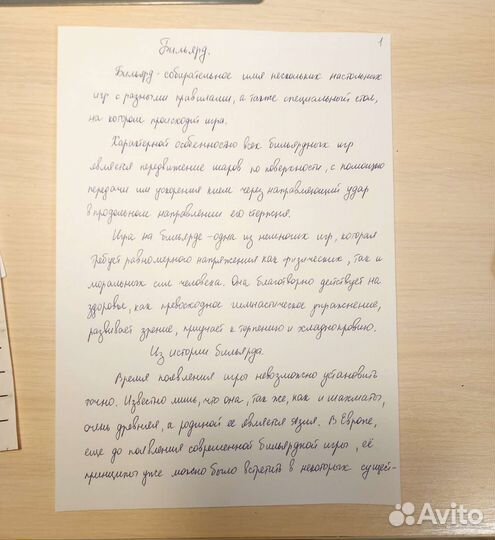 1
Бильярд.
Бильярд - собирательное имя нескольких настольных
игр с разными правилами, а также специальный стол,
на котором происходит игра.
Характерной особенностью всех бильярдных игр
является передвижение шаров по поверхности, с помощью
передачи им ускорения кием через направляющий удар
в продольном направлении его стержня.
Игра на бильярде - одна из немногих игр, которая
требует равномерного напряжения как физических, так и
моральных сил человека. Она благотворно действует на
здоровье, как превосходное гимнастическое упражнение,
развивает зрение, приучает к терпению и хладнокровию.
Из истории бильярда.
Время появления игры невозможно установить
точно. Известно лишь, что она, так же, как и шахматы,
очень древняя, а родиной её является Азия. В Европе,
еще до появления современной бильярдной игры, её
принципы уже можно было встретить в некоторых сущей-
Avito